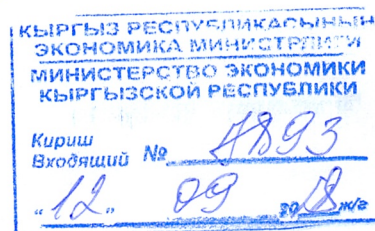 КЫРГЫЗ РЕСПУБЛИКАСЫНЫН
ЭКОНОМИКА МИНИСТРЛИГИ
МИНИСТЕРСТВО ЭКОНОМИКИ
КЫРГЫЗСКОЙ РЕСПУБЛИКИ
Кириш
Входящий № 7893
"12" 09 2018 ж/г